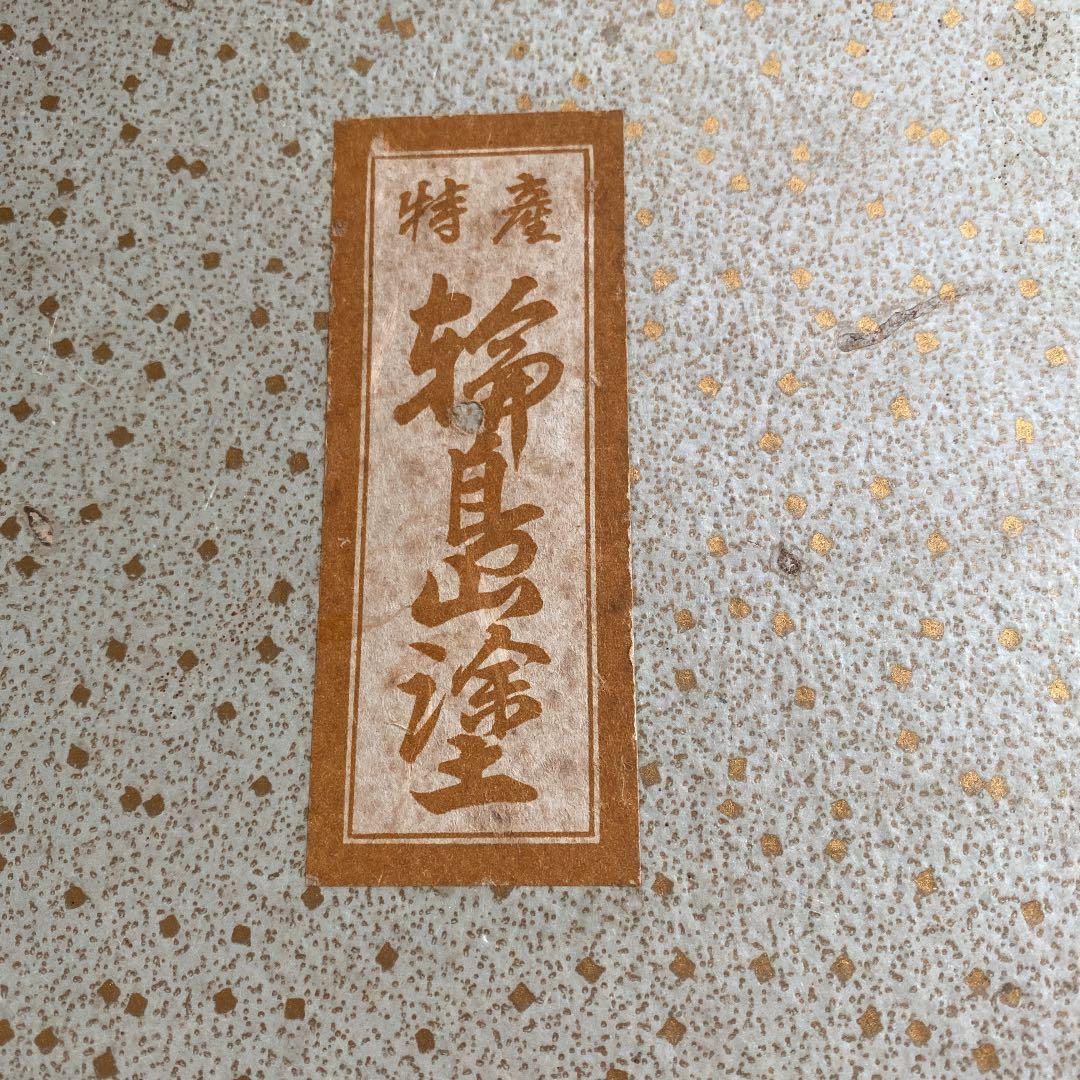 特産
輪島塗